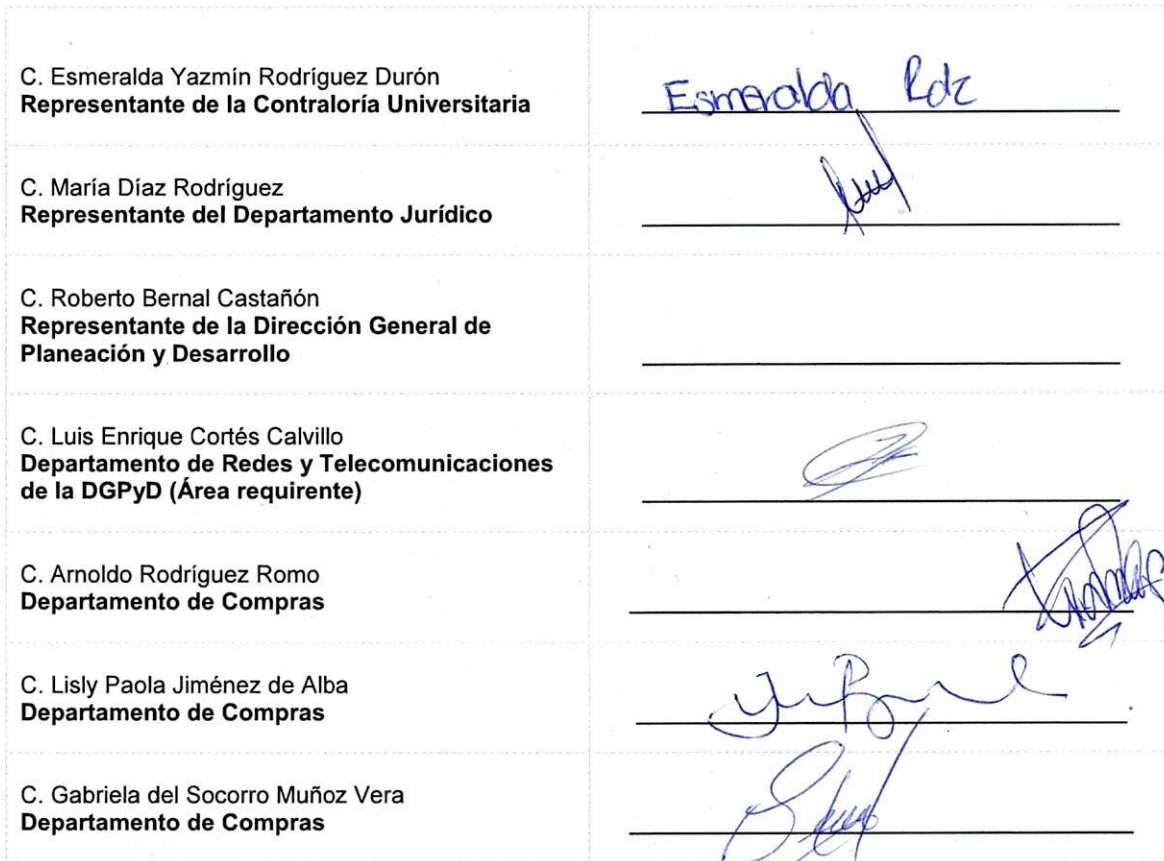 C. Esmeralda Yazmín Rodríguez Durón
Representante de la Contraloría Universitaria
Esmeralda Rdz
C. María Díaz Rodríguez
Representante del Departamento Jurídico
C. Roberto Bernal Castañón
Representante de la Dirección General de
Planeación y Desarrollo
C. Luis Enrique Cortés Calvillo
Departamento de Redes y Telecomunicaciones
de la DGPyD (Área requirente)
C. Arnoldo Rodríguez Romo
Departamento de Compras
C. Lisly Paola Jiménez de Alba
Departamento de Compras
C. Gabriela del Socorro Muñoz Vera
Departamento de Compras